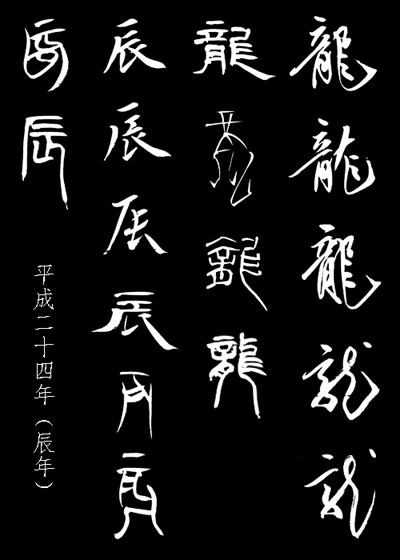 龍龍龍龍龍
龍龍龍龍
辰辰辰辰辰辰
辰辰
平成二十四年（辰年）